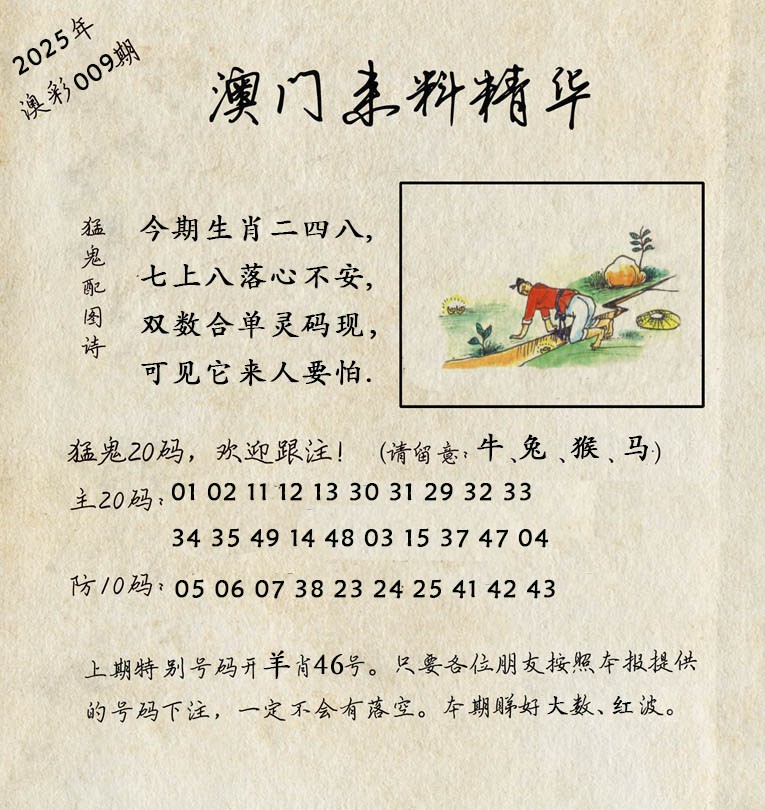 2025年
澳彩009期
澳门来料精华
猛鬼配图诗
今期生肖二四八,
七上八落心不安,
双数合单灵码现,
可见它来人要怕.
猛鬼20码，欢迎跟注！（请留意：牛、兔、猴、马）
主20码：01 02 11 12 13 30 31 29 32 33
34 35 49 14 48 03 15 37 47 04
防10码：05 06 07 38 23 24 25 41 42 43
上期特别号码开羊肖46号。只要各位朋友按照本报提供
的号码下注，一定不会有落空。本期睇好大数、红波。